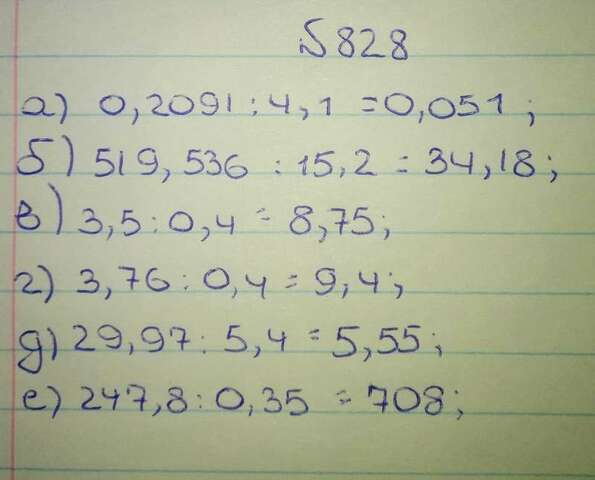 №828
а) 0,2091 : 4,1 = 0,051;
б) 519,536 : 15,2 = 34,18;
в) 3,5 : 0,4 = 8,75;
г) 3,76 : 0,4 = 9,4;
д) 29,97 : 5,4 = 5,55;
е) 247,8 : 0,35 = 708;